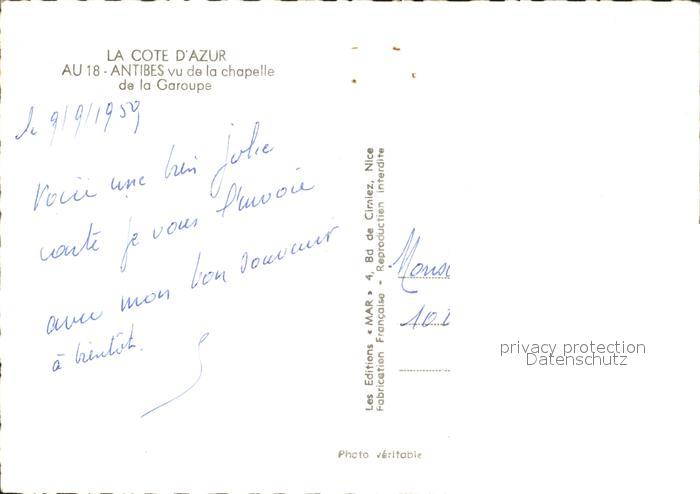 LA COTE D'AZUR
AU 18 - ANTIBES vu de la chapelle
de la Garoupe
le 9/9/1959
Voici une bien jolie
carte je vous l'envoie
avec mon bon souvenir
à bientôt.
Les Editions « MAR » 4, Bd de Cimiez, Nice
Fabrication Française - Reproduction interdite
Mons
101
privacy protection
Datenschutz
Photo véritable